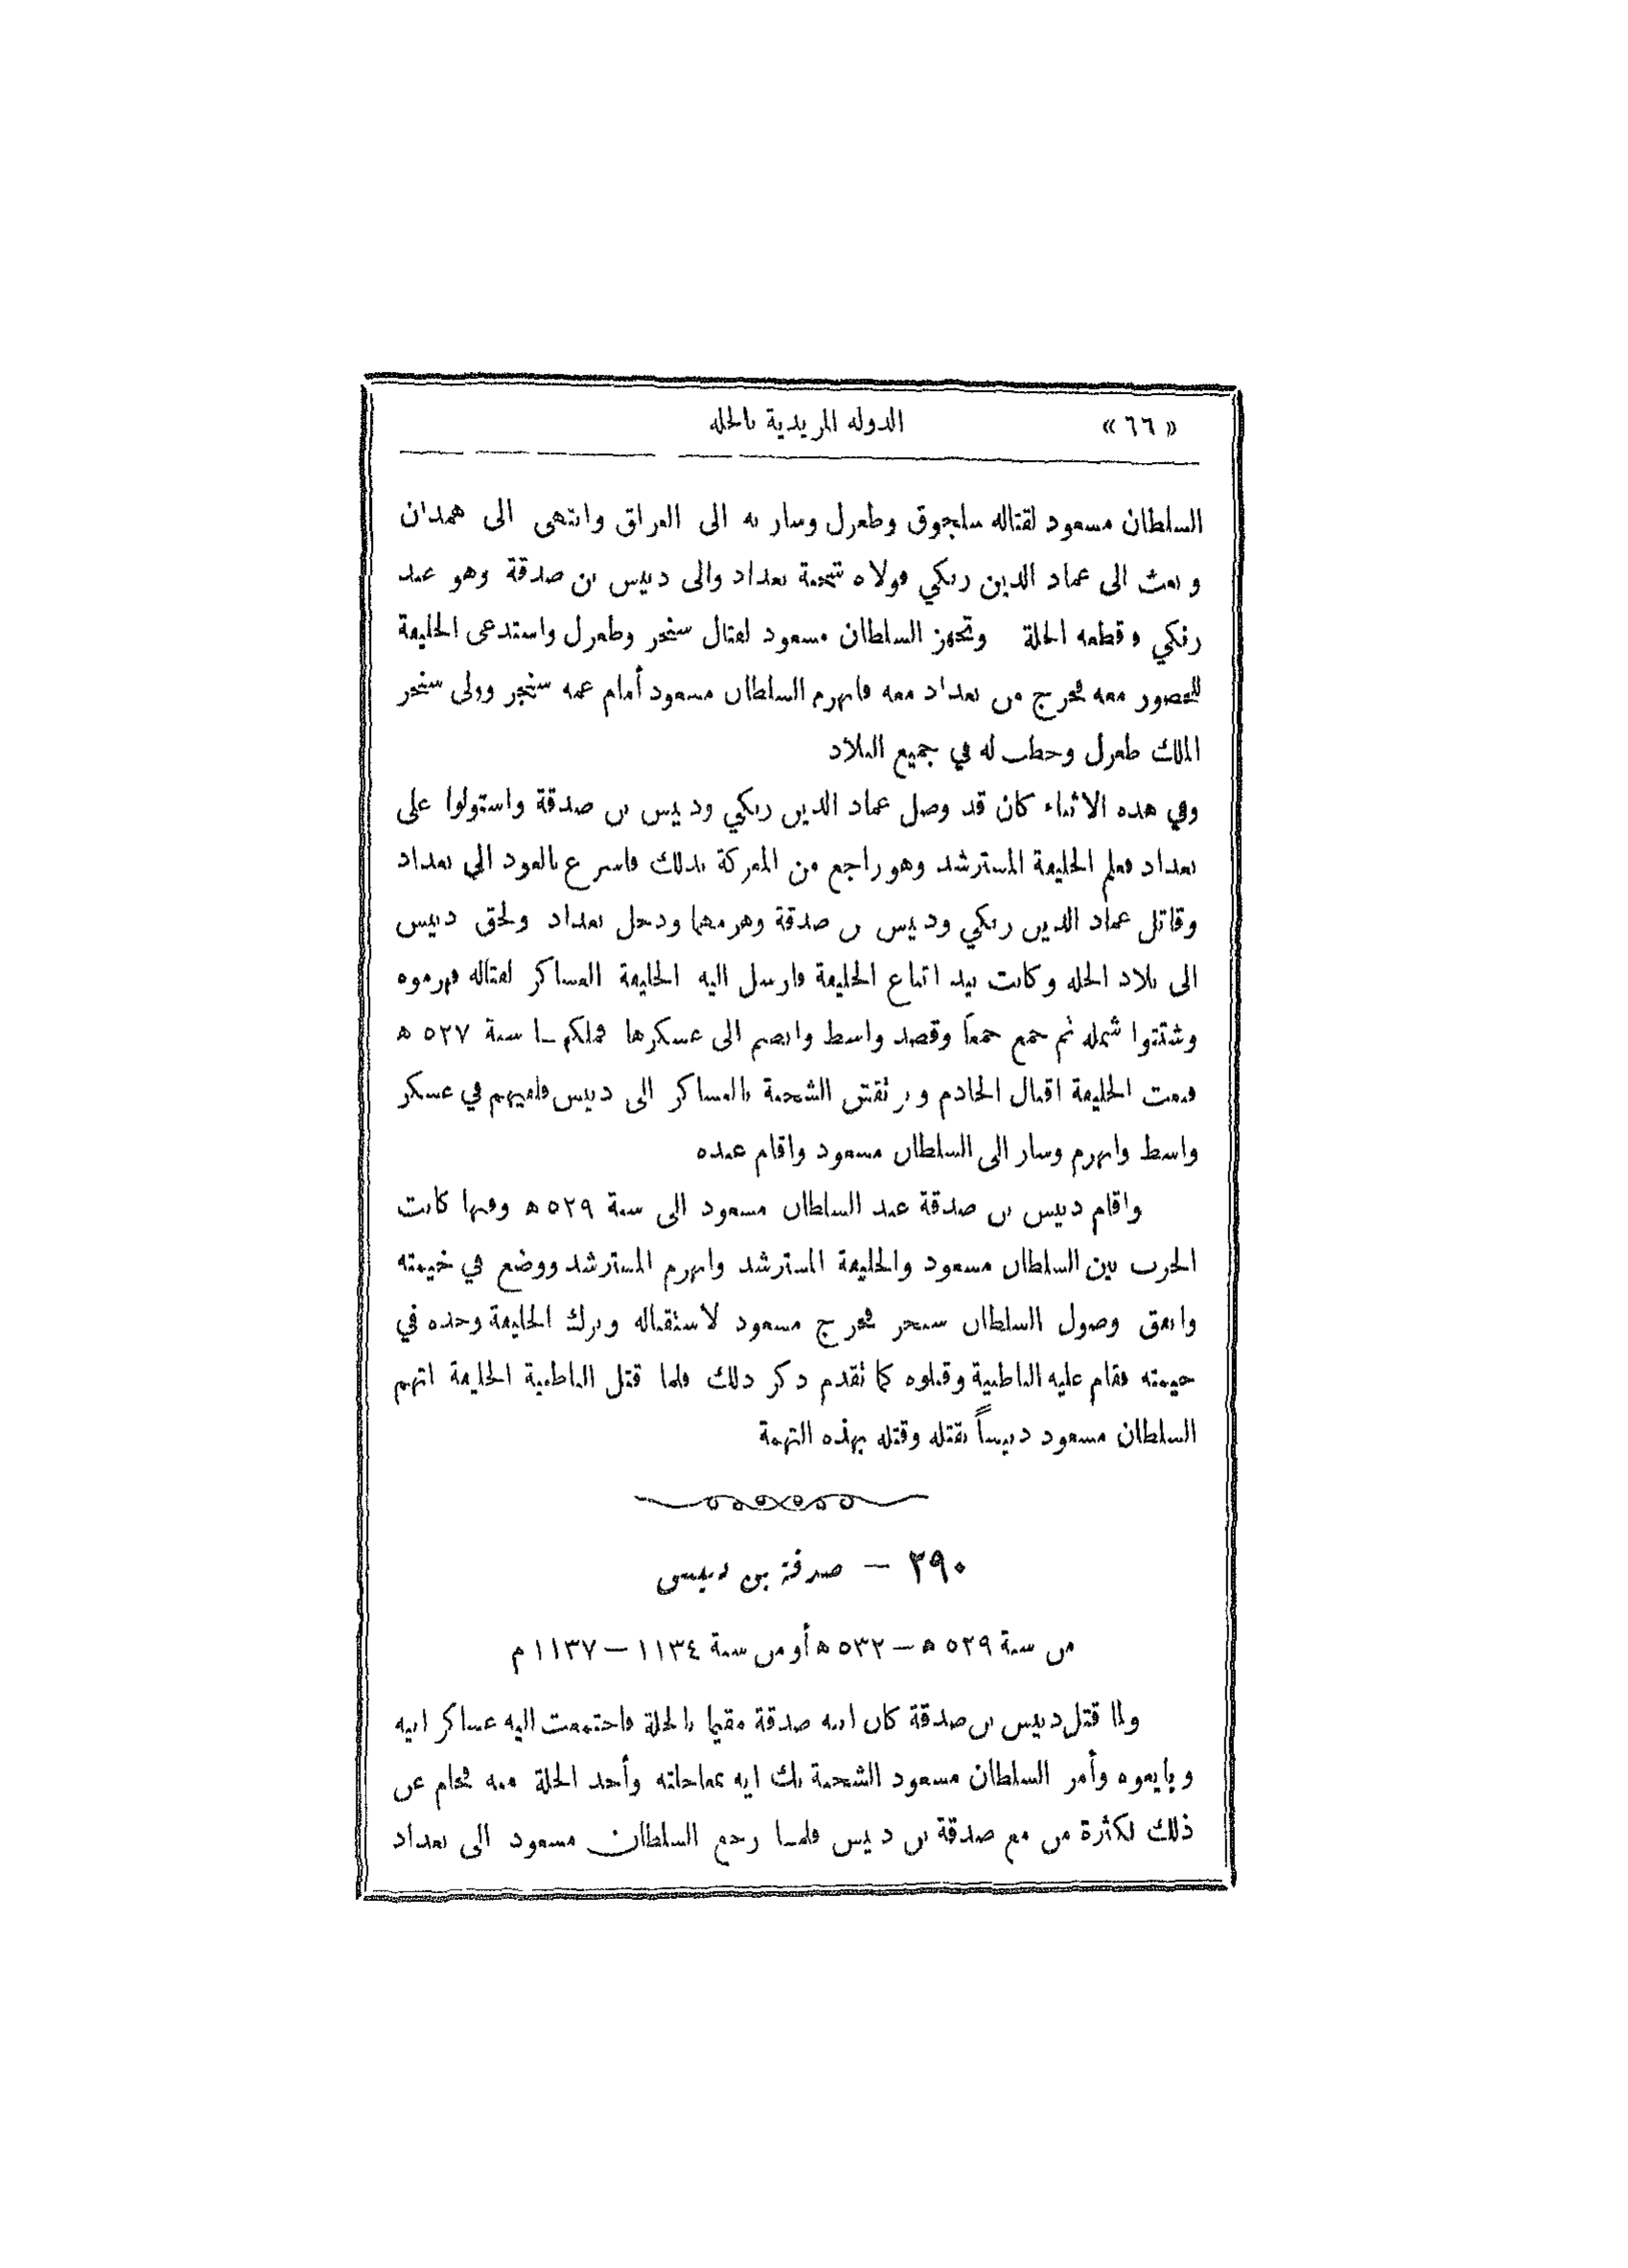 « ٦٦ » الدولة المزيدية بالحلة
السلطان مسعود لقتاله سلجوق وطغرل وسار به الى العراق وانتهى الى همدان
وبعث الى عماد الدين زنكي فولاه شحنة بغداد والى دبيس بن صدقة وهو عند
زنكي وقطعه الحلة وتجهز السلطان مسعود لقتال سنجر وطغرل واستدعى الخليفة
للحضور معه فخرج من بغداد معه فانهزم السلطان مسعود أمام عمه سنجر وولى سنجر
الملك طغرل وخطب له في جميع البلاد
وفي هذه الاثناء كان قد وصل عماد الدين زنكي ودبيس بن صدقة واستولوا على
بغداد فعلم الخليفة المسترشد وهو راجع من المعركة بذلك فاسرع بالعود الى بغداد
وقاتل عماد الدين زنكي ودبيس بن صدقة وهزمهما ودخل بغداد ولحق دبيس
الى بلاد الحلة وكانت بيد اتباع الخليفة فارسل اليه الخليفة العساكر لقتاله فهزموه
وشتتوا شمله ثم جمع جمعاً وقصد واسط وانضم الى عسكرها فملكهـا سنة ٥٢٧ ه
فبعث الخليفة اقبال الخادم وبرنقش الشحنة بالعساكر الى دبيس فلقيهم في عسكر
واسط وانهزم وسار الى السلطان مسعود واقام عنده
واقام دبيس بن صدقة عند السلطان مسعود الى سنة ٥٢٩ ه وفيها كانت
الحرب بين السلطان مسعود والخليفة المسترشد وانهزم المسترشد ووضع في خيمته
واتفق وصول السلطان سنجر فخرج مسعود لاستقباله وترك الخليفة وحده في
خيمته فقام عليه الباطنية وقتلوه كما تقدم ذكر ذلك فلما قتل الباطنية الخليفة اتهم
السلطان مسعود دبيساً بقتله وقتله بهذه التهمة
٣٩٠ — صدقة بن دبيس
من سنة ٥٢٩ ه — ٥٣٢ ه أو من سنة ١١٣٤ — ١١٣٧ م
ولما قتل دبيس بن صدقة كان ابنه صدقة مقيما بالحلة فاجتمعت اليه عساكر ابيه
وبايعوه وأمر السلطان مسعود الشحنة بك ابه بمعاجلته وأخذ الحلة منه فخام عن
ذلك لكثرة من مع صدقة بن دبيس فلمـا رجع السلطان مسعود الى بغداد